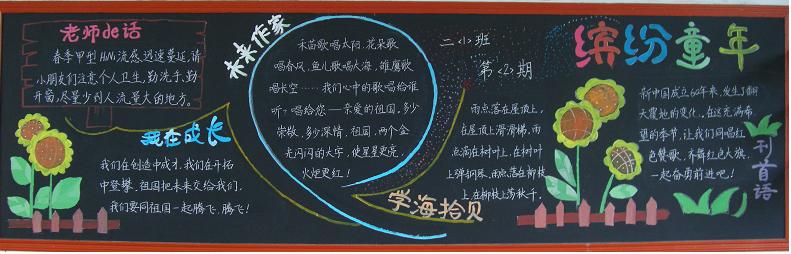 老师de话
春季甲型H1N1流感,迅速蔓延,请
小朋友们注意个人卫生,勤洗手,勤
开窗,尽量少到人流量大的地方。
我在成长
我们在创造中成才,我们在开拓
中登攀,祖国把未来交给我们,
我们要同祖国一起腾飞,腾飞!
未来作家
禾苗歌唱太阳,花朵歌
唱春风,鱼儿歌唱大海,雄鹰歌
唱长空……我们心中的歌唱给谁
听?唱给您——亲爱的祖国。多少
崇敬,多少深情,祖国,两个金
光闪闪的大字,使星星更亮,
火炬更红!
二<1>班
第<2>期
雨点落在屋顶上,
在屋顶上滑滑梯,雨
点滴在树叶上,在树叶
上弹钢琴,雨点落在柳枝
上,在柳枝上荡秋千。
学海拾贝
缤纷童年
新中国成立60年来,发生了翻
天覆地的变化。在这充满希
望的季节,让我们同唱红
色赞歌,齐舞红色大旗,
一起奋勇前进吧!
刊首语